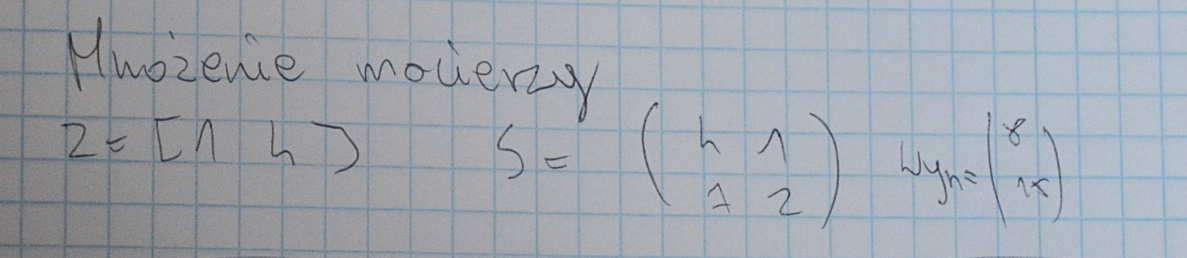 Mnożenie macierzy
Z = [1 4] S = ( 4 1 ) Wyn = ( 8 )
7 2 15